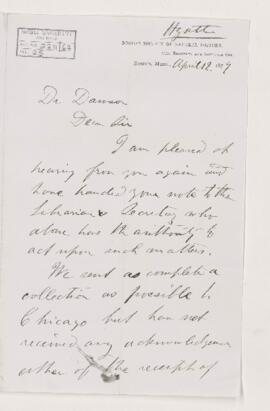 Hyatt
BOSTON SOCIETY OF NATURAL HISTORY,
BOSTON, MASS., April 12
Dr. Dawson
Dear Sir
I am pleased at
hearing from you again and
have handed your note to the
Librarian & Secretary who
alone has the authority to
act upon such matters.
We sent as complete a
collection as possible to
Chicago but have not
received any acknowledgemen
either of the receipt of